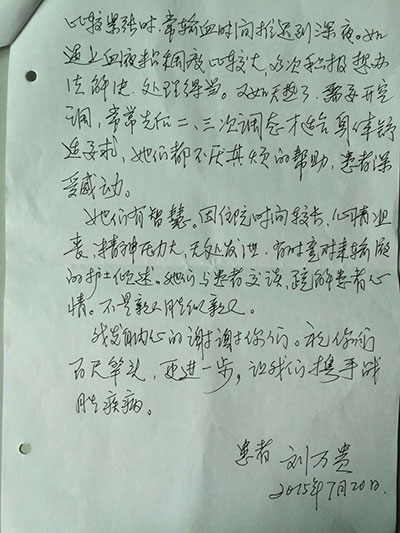 比较紧张时，常输血时间推迟到深夜。如
遇上血液粘稠度比较大，多次积极想办
法解决，处理得当。又如天热了，需要开空
调，常常先后二、三次调态才适合身体舒
适要求，她们都不厌其烦的帮助，患者深
受感动。
她们有智慧。因住院时间较长，心情沮
丧，精神压力大，无处发泄，有时竟对来输液
的护士倾述。她们与患者交谈，疏解患者心
情。不是亲人胜似亲人。
我发自内心的谢谢你们。祝你们
百尺竿头，更进一步。让我们携手战
胜疾病。
患者 刘万贵
2015年7月20日.